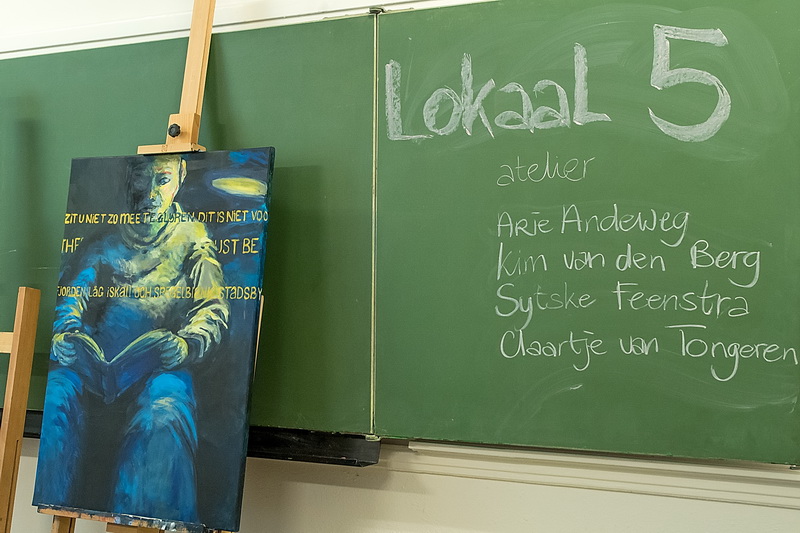 Lokaal 5
atelier
Arie Andeweg
Kim van den Berg
Sytske Feenstra
Claartje van Tongeren
ZIT U NIET ZO MEE TE GLUREN, DIT IS NIET VOO
THE UST BE
FJORDEN LÅG ISKALL OCH STADSBY